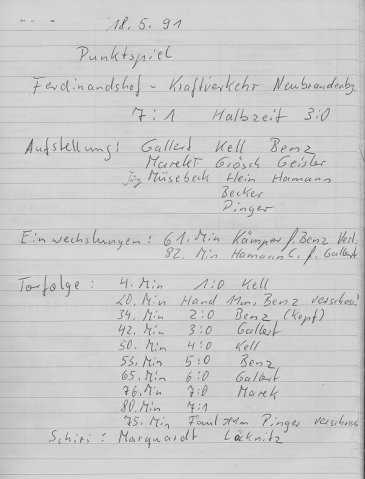 18.5.91
Punktspiel
Ferdinandshof - Kraftverkehr Neubrandenbg.
7:1 Halbzeit 3:0
Aufstellung: Gallert Kell Benz
Marekt Grösch Geisler
Jörg Müsebeck Hein Hamann
Becker
Pinger
Einwechslungen: 61. Min Kämper f. Benz Verl.
82. Min Hamann C. f. Gallert
Torfolge: 4. Min 1:0 Kell
20. Min Hand 11m. Benz verschos!
34. Min 2:0 Benz (Kopf)
42. Min 3:0 Gallert
50. Min 4:0 Kell
53. Min 5:0 Benz
65. Min 6:0 Gallert
76. Min 7:0 Marek
80. Min 7:1
75. Min Faul 11m Pinger verschoss
Schiri: Marquardt Löcknitz